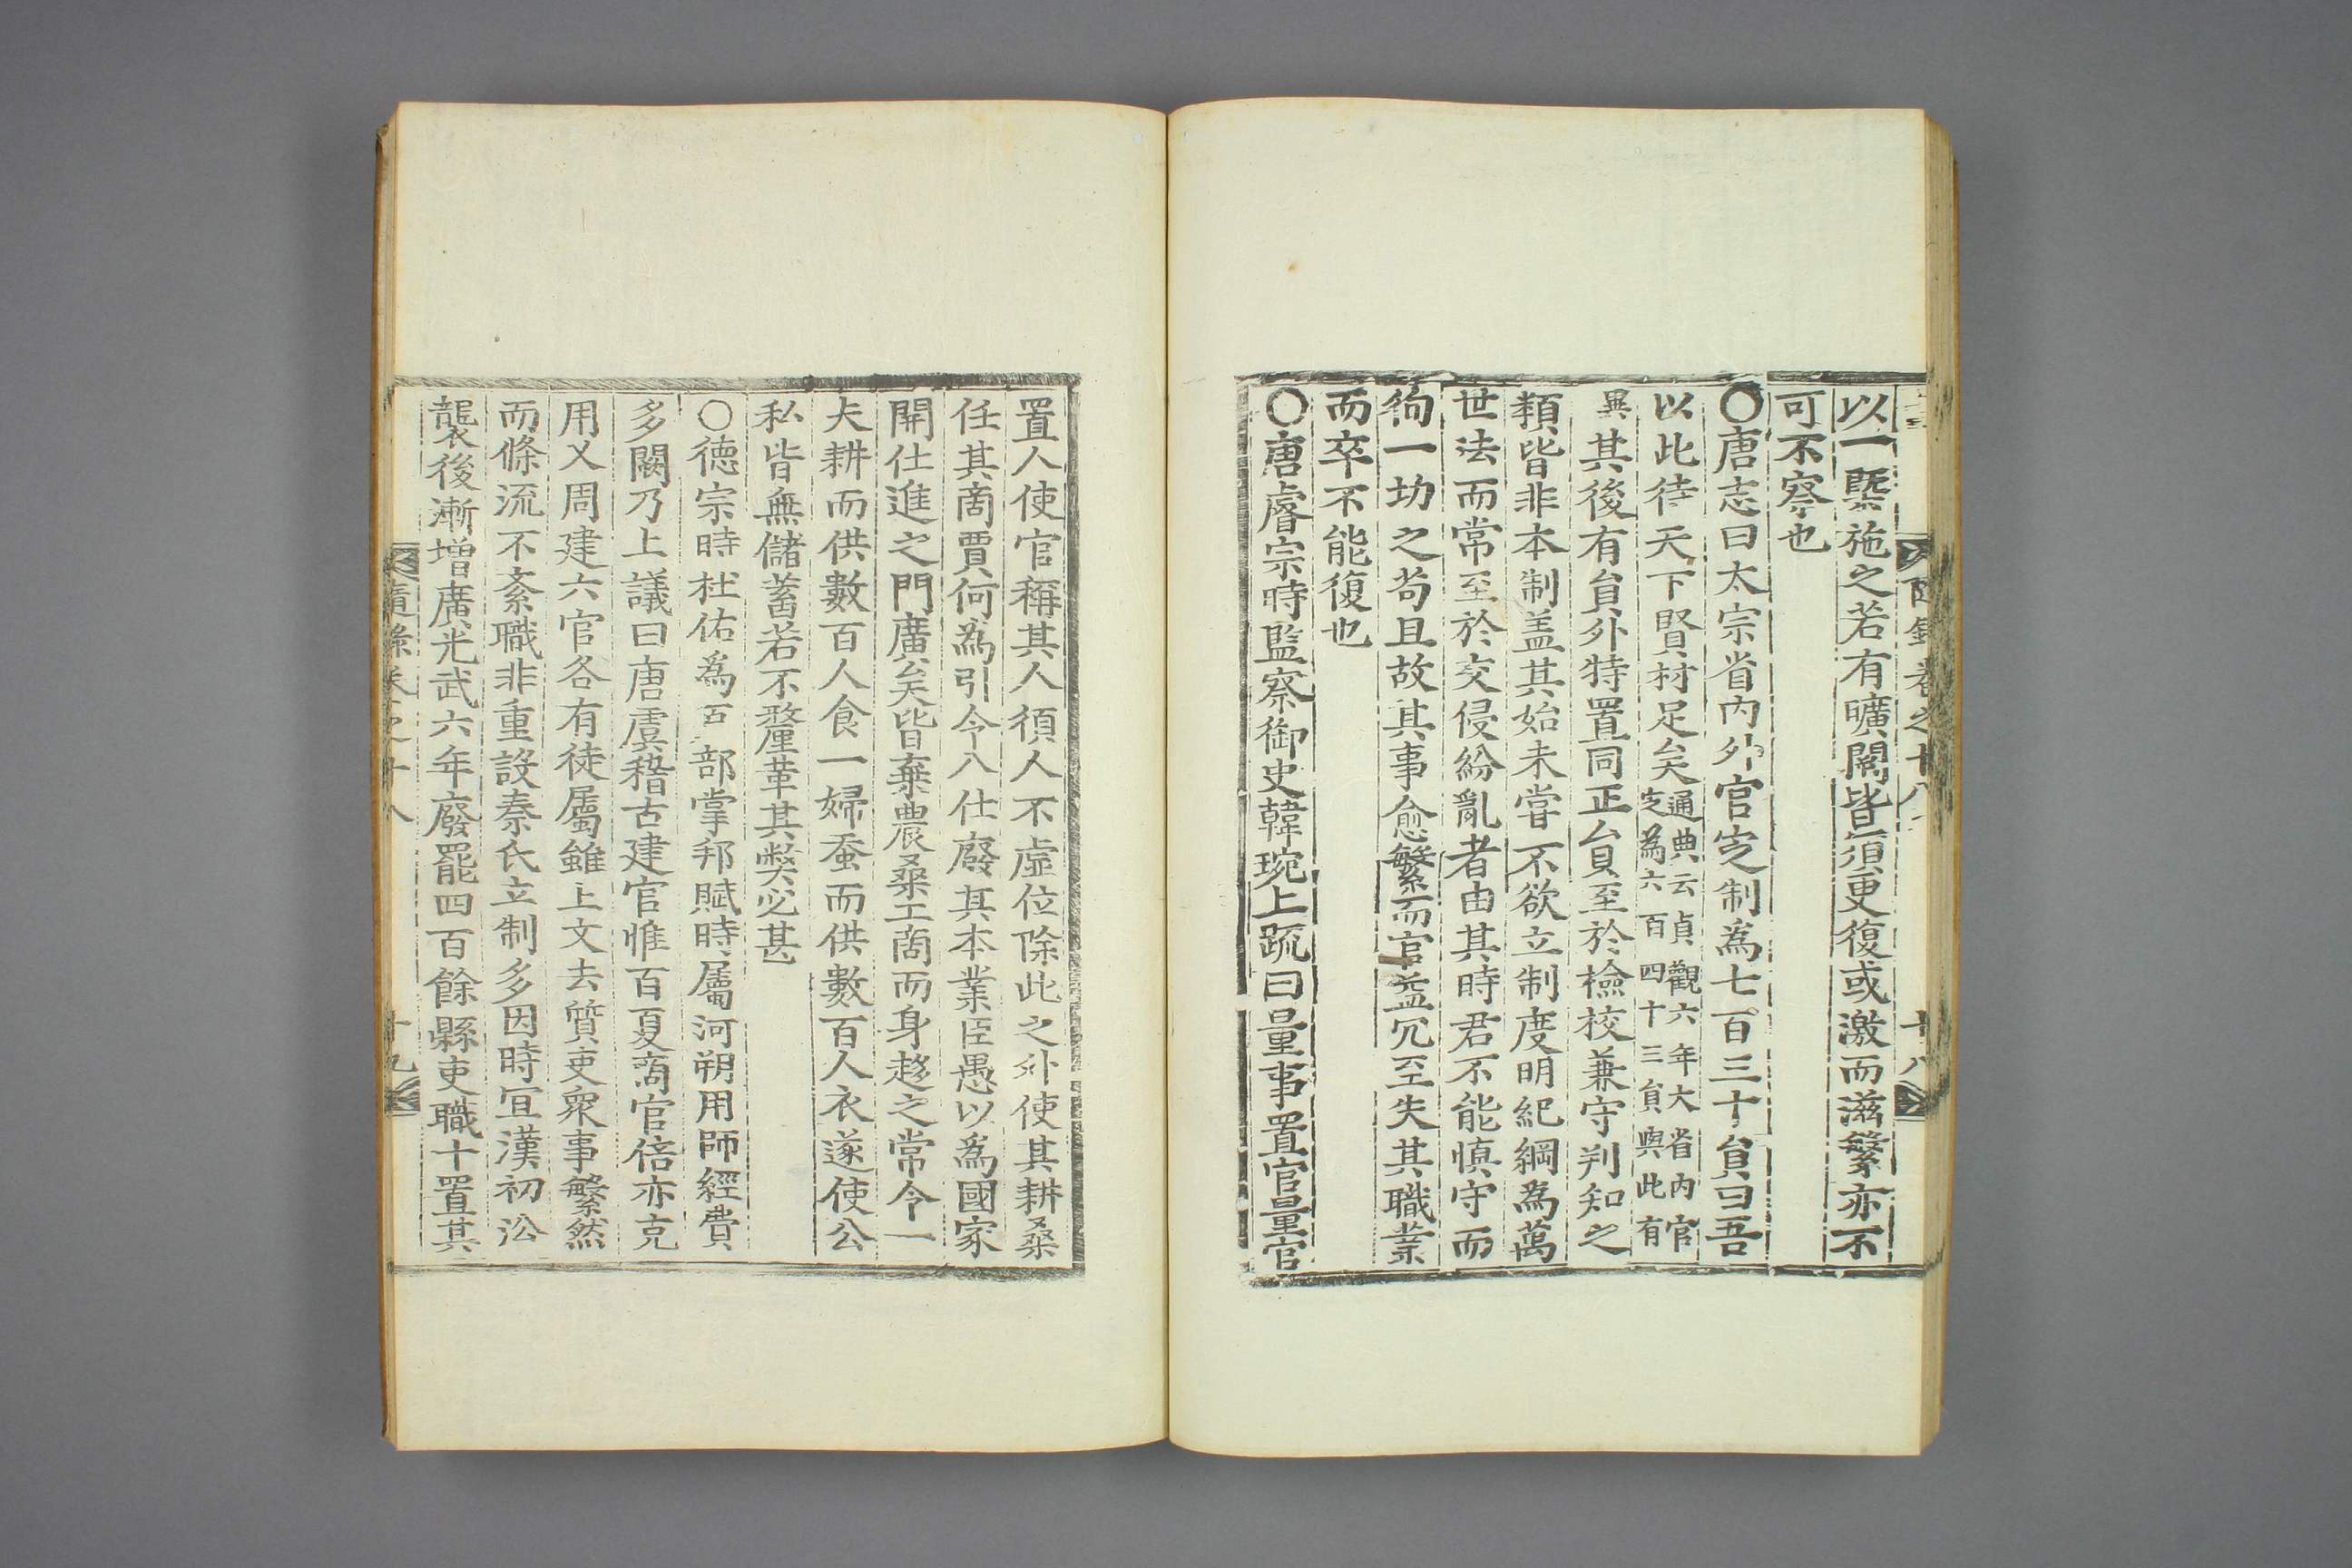 隨錄卷之十八
十八
以一槩施之若有曠闕皆須更復或激而滋繁亦不
可不察也
○唐志曰太宗省內外官㝎制爲七百三十貟曰吾
以此待天下賢材足矣通典云貞觀六年大省內官㝎爲六百四十三貟與此有
異其後有貟外特置同正貟至於檢校兼守判知之
類皆非本制盖其始未嘗不欲立制度明紀綱爲萬
世法而常至於交侵紛亂者由其時君不能慎守而
徇一切之苟且故其事愈繁而官益冗至失其職業
而卒不能復也
○唐睿宗時監察御史韓琬上疏曰量事置官量官
置人使官稱其人須人不虛位除此之外使其耕桑
任其商賈何爲引令入仕廢其本業臣愚以爲國家
開仕進之門廣矣皆棄農桑工商而身趍之常今一
夫耕而供數百人食一婦蚕而供數百人衣遂使公
私皆無儲蓄若不釐革其弊必甚
○德宗時杜佑爲部掌邦賦時屬河朔用師經費
多闕乃上議曰唐虞稽古建官惟百夏商官倍亦克
用乂周建六官各有徒屬雖上文去質吏衆事繁然
而條流不紊職非重設秦氏立制多因時宜漢初㳂
襲後漸增廣光武六年廢罷四百餘縣吏職十置其
隨錄卷之十八
十九